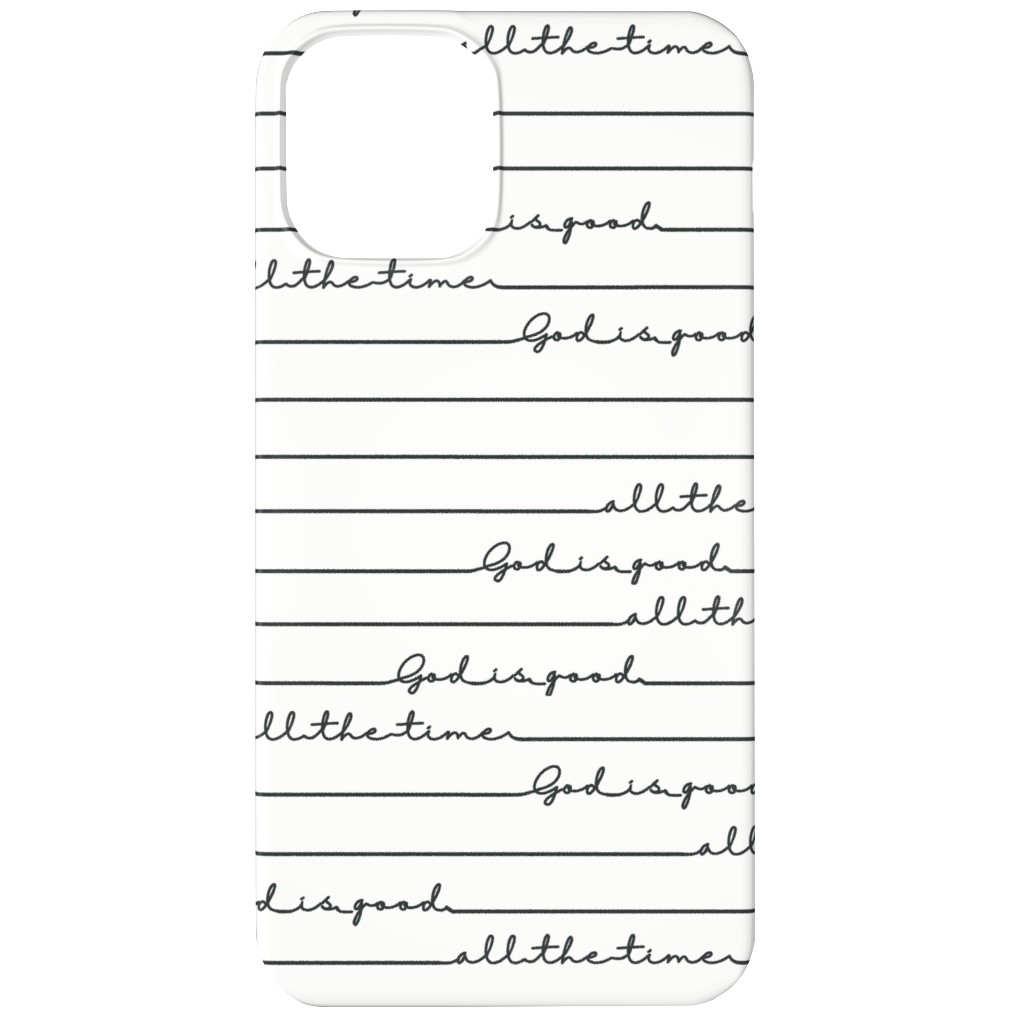 all the time
is good
ll the time
God is good
all the
God is good
all th
God is good
ll the time
God is good
all
d is good
all the time